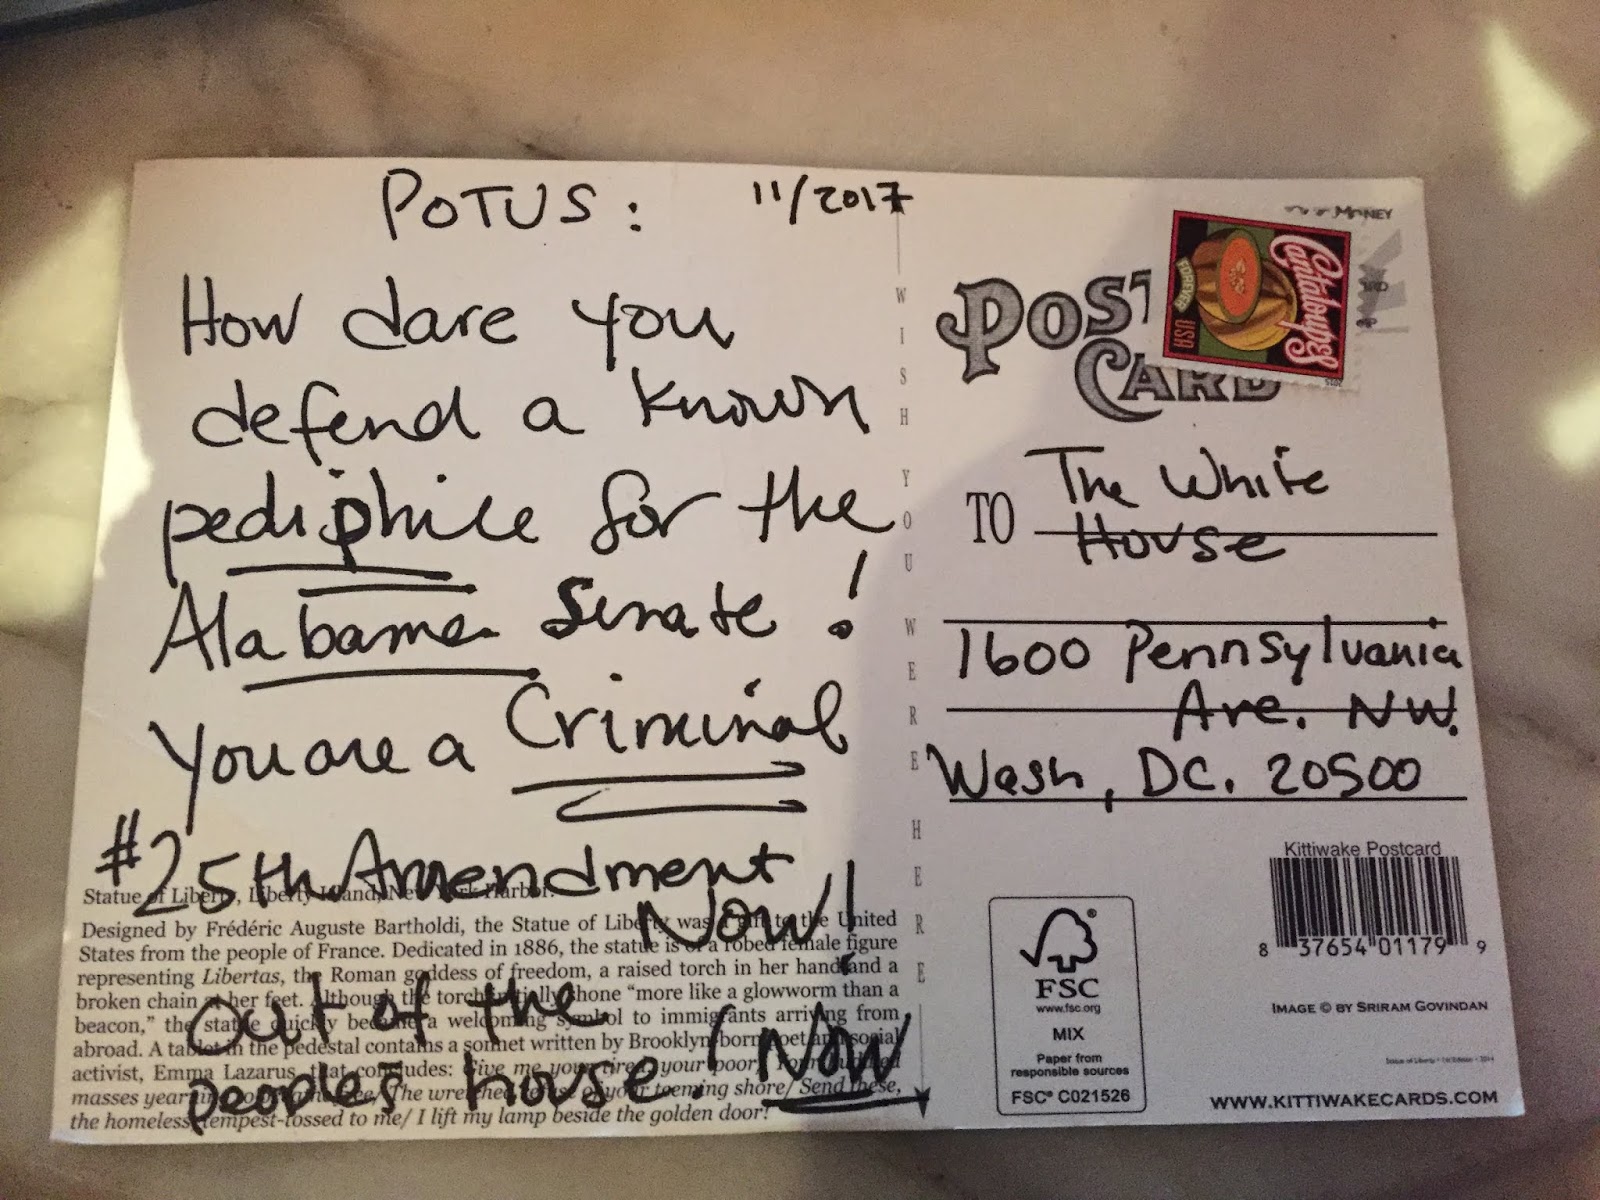 POTUS: 11/2017
How dare you
defend a known
pediphile for the
Alabama Senate!
You are a Criminal
#25th Amendment
Now!
Out of the
peoples house! Now
Statue of Liberty, Liberty Island, New York Harbor.
Designed by Frédéric Auguste Bartholdi, the Statue of Liberty was a gift to the United
States from the people of France. Dedicated in 1886, the statue is of a robed female figure
representing Libertas, the Roman goddess of freedom, a raised torch in her hand and a
broken chain at her feet. Although the torch initially shone “more like a glowworm than a
beacon,” the statue quickly became a welcoming symbol to immigrants arriving from
abroad. A tablet in the pedestal contains a sonnet written by Brooklyn born poet and social
activist, Emma Lazarus, that concludes: Give me your tired, your poor,/ Your huddled
masses yearning to breathe free,/ The wretched refuse of your teeming shore/ Send these,
the homeless, tempest-tossed to me/ I lift my lamp beside the golden door!
WISH YOU WERE HERE
MONEY
POST
CARD
Cantaloupes
FOREVER
USA
2015
TO The White
House
1600 Pennsylvania
Ave. NW.
Wash, DC. 20500
Kittiwake Postcard
8 37654 01179 9
FSC
www.fsc.org
MIX
Paper from
responsible sources
FSC® C021526
IMAGE © BY SRIRAM GOVINDAN
Statue of Liberty • 1st Edition • 2014
WWW.KITTIWAKECARDS.COM